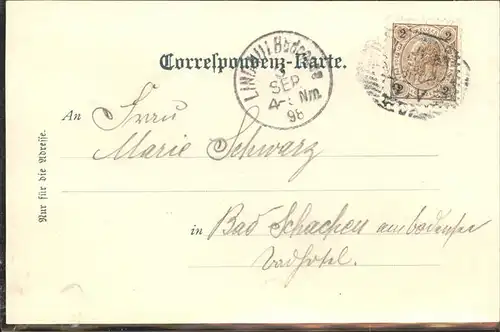 Correspondenz-Karte.
LINDAU i. Bodensee
SEP
4-5 Nm.
98
2 2
2 2
An Frau
Marie Schwarz
in Bad Schachen am bodensee
Badhotel.
Nur für die Adresse.